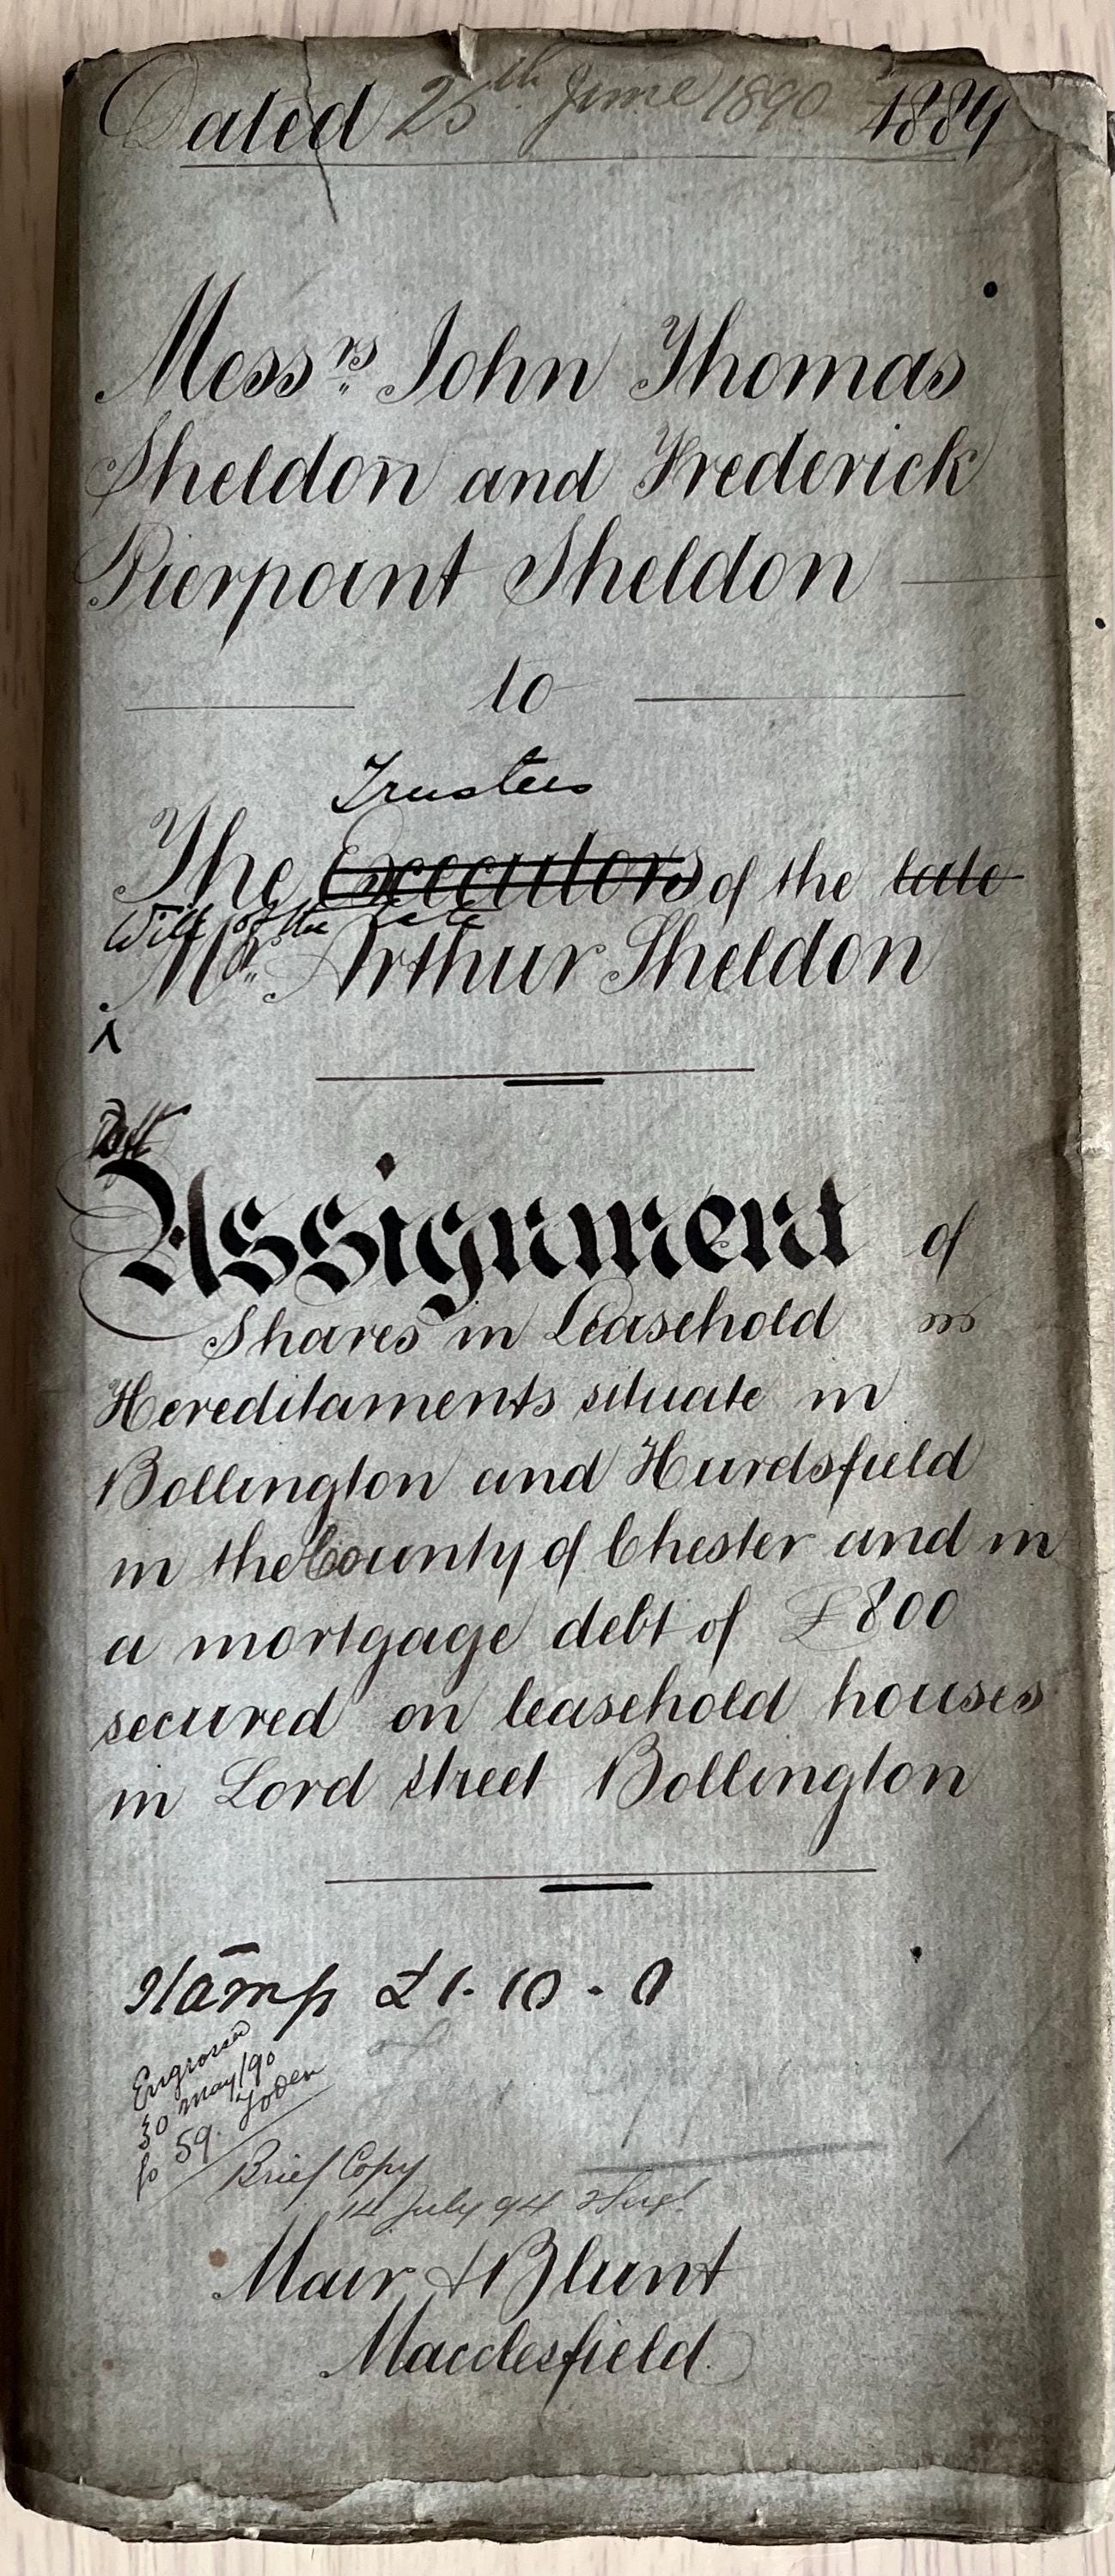 Dated 25th June 1890 1889
Messrs John Thomas
Sheldon and Frederick
Pierpoint Sheldon
to
Trustees
The Executors of the late
Will of the late
Mr. Arthur Sheldon
Dft
Assignment of
Shares in Leasehold
Hereditaments situate in
Bollington and Hurdsfield
in the County of Chester and in
a mortgage debt of £800
secured on leasehold houses
in Lord Street Bollington
Stamp £1.10.0
Engrossed
30 May/90
fo 59.
Brief Copy
14 July 94
Mair & Blunt
Macclesfield